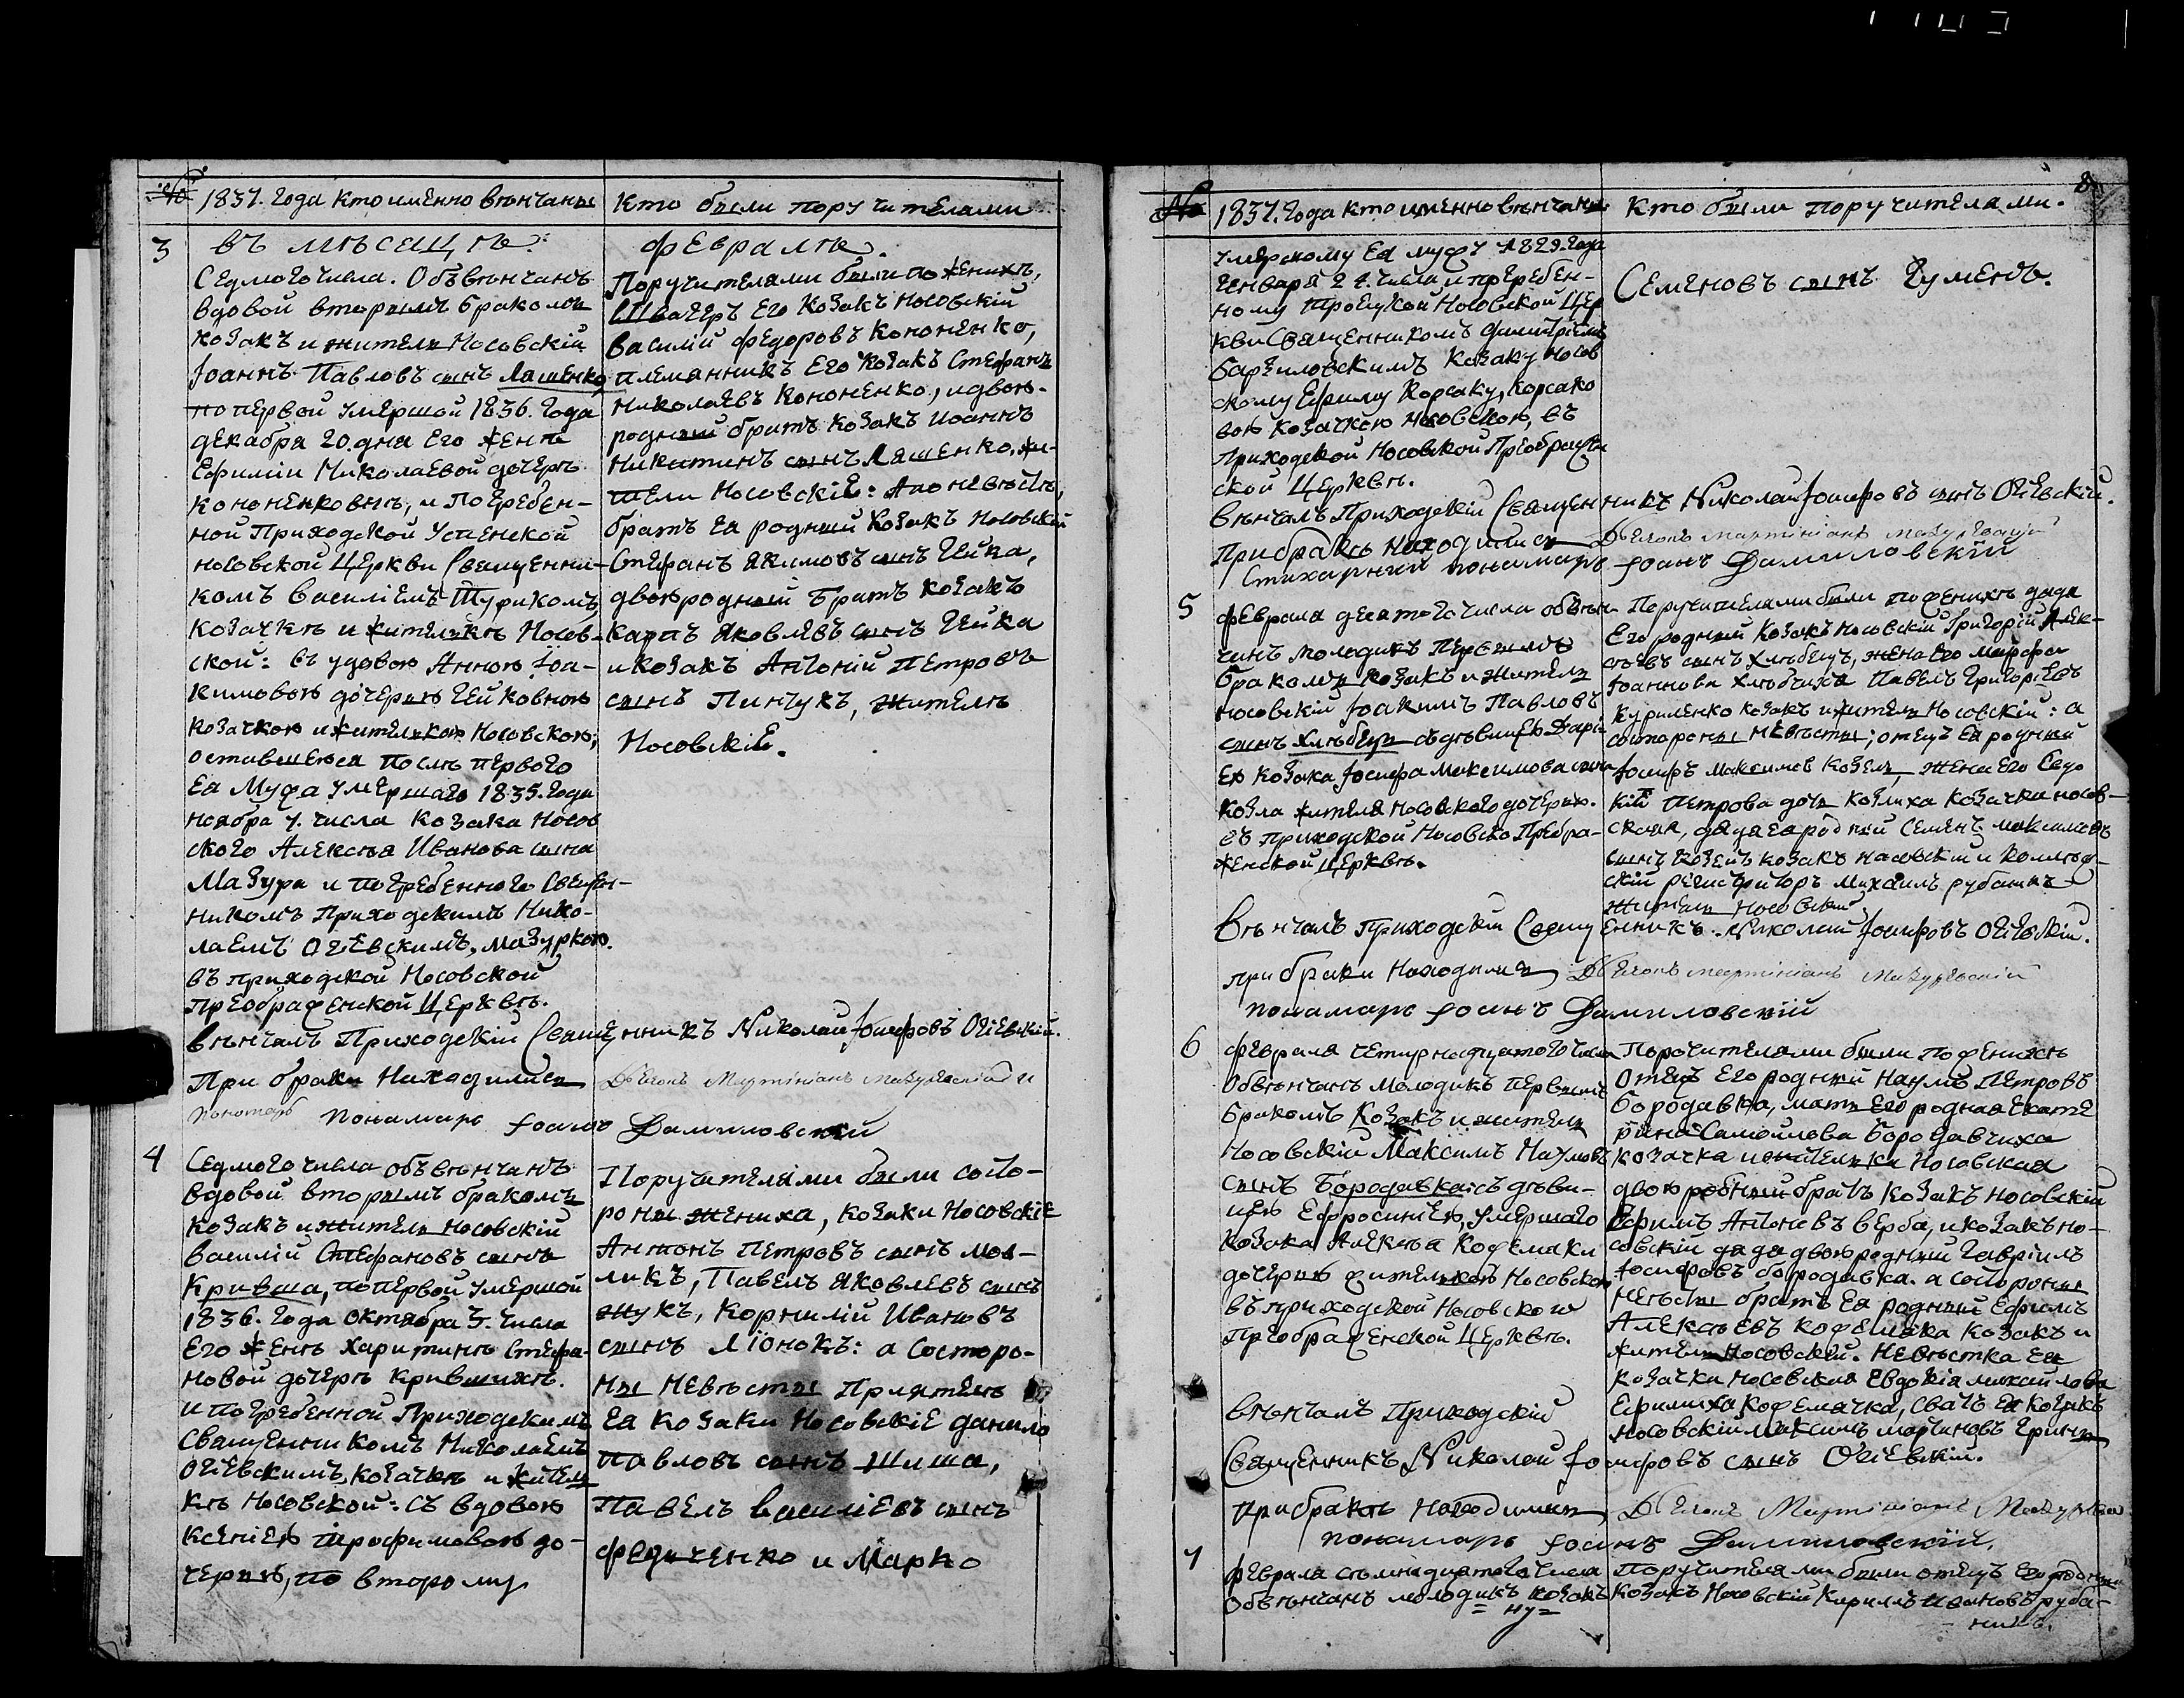 № 1837. Года кто именно вѣнчаны
Кто были поручителами
3
въ мѣсецѣ
Седмого числа. Обвѣнчанъ
вдовой вторымъ бракомъ
козакъ и житель Носовскій
Іоаннъ Павловъ сынъ Ляшенко,
по первой умершой 1836. Года
декабря 20. дня Его женѣ
Ефиміи Николаевой дочерѣ
Кононенковнѣ, и погребен-
ной Приходской Успенской
носовской Церкви Священни-
комъ Василіемъ Турикомъ,
козачкѣ и жителькѣ Носов-
ской: въ удовою Анною Іоа-
кимовою дочерью Гейковною
козачкою и жителькою Носовскою;
оставшеюся послѣ первого
Ея Мужа умершаго 1835. Года
ноября 7. числа Козака Носов
ского Алексѣя Иванова сына
Мазура и погребенного Свещен-
никомъ Приходскимъ Нико-
лаемъ Огіевскимъ, Мазуркою.
въ приходской Носовской
Преображенской Церквѣ.
февралѣ.
Поручителями были по женихѣ,
Швагеръ Его Козакъ Носовскій
Василій Федоровъ Кононенко,
племянникъ Его Козакъ Стефанъ
Николаевъ Кононенко, и двою-
родный братъ козакъ Иоаннъ
Никитинъ сынъ Ляшенко, жи-
тели Носовскіе: А по невѣстѣ,
братъ Ея родный Козакъ Носовскій
Стефанъ Якимовъ сынъ Гейка,
двоюродный Братъ козакъ
Карпъ Яковлевъ сынъ Гейка
и козакъ Антоній Петровъ
сынъ Пинчукъ, жителѣ
Носовскіе.
вѣнчалъ Приходскій Священникъ Николай Іосифовъ Огіевскій.
При браки Находились Діяконъ Мартиніанъ и
Пономаръ пономаръ Іоанъ Даниловскій
4
Седмого числа обвѣнчанъ
вдовой вторымъ бракомъ
козакъ и житель носовскій
Василій Стефановъ сынъ
Кривша, по первой умершой
1836. Года октября 3. числа
Его женѣ Харитинѣ Стефа-
новой дочерѣ Крившихѣ.
и погребенной Приходскимъ
Священникомъ Николаемъ
Огіевскимъ, козачкѣ и житель
кѣ Носовской: съ вдовою
Ксеніею Трофимовою до-
черью, по второму
Поручителями были со сто-
роны жениха, козаки Носовскіе
Антонъ Петровъ сынъ
Павелъ Яковлевъ сынъ
Жукъ, Корнилій Ивановъ
сынъ Ліонокъ: а со сторо-
ны невѣсты Пріятелѣ
Ея козаки Носовскіе Данило
Павловъ сынъ Шиша,
Павелъ Василіевъ сынъ
Федченко и Марко
8
№ 1837. Года кто именно вѣнчаны
Кто были поручителями.
умерскому Ея мужу 1829. Года
Генваря 24. числа и погребен-
ному Троицкой Носовской Цер
кви Священникомъ Димитріемъ
Козаку носов
скому Ефиму Корсаку, Корсако
вою козачкою носовскою, въ
Приходской Носовской Преображен
ской Церквѣ.
Семеновъ сынъ Гуменъ.
вѣнчалъ Приходскій Священникъ Николай Іосифовъ сынъ Огіевскій.
При бракѣ Находились Діяконъ Мартиніанъ
Стихарный пономаръ Іоанъ Даниловскій
5
Февраля десятого числа обвѣн-
чанъ молодикъ первымъ
бракомъ козакъ и житель
носовскій Іоакимъ Павловъ
сынъ Хлѣбецъ съ дѣвицею Дарі-
ею козака Іосифа Максимова сына
Козла жителя Носовского дочерью.
въ приходской Носовско Преобра-
женской Церквѣ.
Поручителями были по женихѣ дядя
Его родный Козакъ Носовскій Григорій Алек-
сѣевъ сынъ Хлѣбецъ, жена Его Марфа
Іоаннова Хлѣбчиха Павелъ Григоріевъ
Куриленко козакъ и житель Носовскій: а
со стороны невѣсты; отецъ Ея родный
Іосифъ Максимов Козелъ, жена Его Евдо
кія Петрова дочь Козлиха козачка носов-
ская, дядя Ея родный Семенъ Максимовъ
сынъ Козелъ козакъ носовскій и коллеж-
скій регистраторъ Михаилъ
жители Носовскій
вѣнчалъ Приходскій Священникъ Николай Іосифовъ Огіевскій.
при браки Находились Діяконъ Мартиніанъ
пономаръ Іоанъ Даниловскій
6
Февраля четырнадцатого числа
Обвѣнчанъ Молодикъ первымъ
бракомъ Козакъ и житель
Носовскій Максимъ Наумовъ
сынъ Бородавка: съ дѣви-
цею Ефросиніею, умершаго
козака Алексѣя Кожемяки
дочерью жителькою Носовскою
въ приходской Носовской
Преображенской Церквѣ.
Поручителями были по женихѣ
Отецъ Его родный Наумъ Петровъ
Бородавка, мать Его родная Екате
рина Самойлова Бородавчиха
козачка и жителька Носовская
двоюродный братъ козакъ Носовскій
Ефимъ Антоневъ Верба, и козакъ но-
совскій дядя двоюродный Гавріилъ
Іосифовъ Бородавка. а со стороны
невѣсты братъ Ея родный Ефимъ
Алексѣевъ Кожемяка козакъ и
житель Носовскій. Невѣстка Ея
козачка Носовская Евдокія Михайлова
Ефимиха Кожемячка, сватъ Ея козакъ
носовскій Максимъ Мартиновъ
вѣнчалъ Приходскій
Священникъ Николай Іосифовъ сынъ Огіевскій.
при бракѣ Находились Діяконъ Мартиніанъ
пономаръ Іоанъ Даниловскій.
7
Февраля сѣмнадцатого числа
Обвѣнчанъ молодикъ козакъ
Поручителями были отецъ Его родный
козакъ Носовскій Кирилъ Ивановъ Руба-
нникъ.